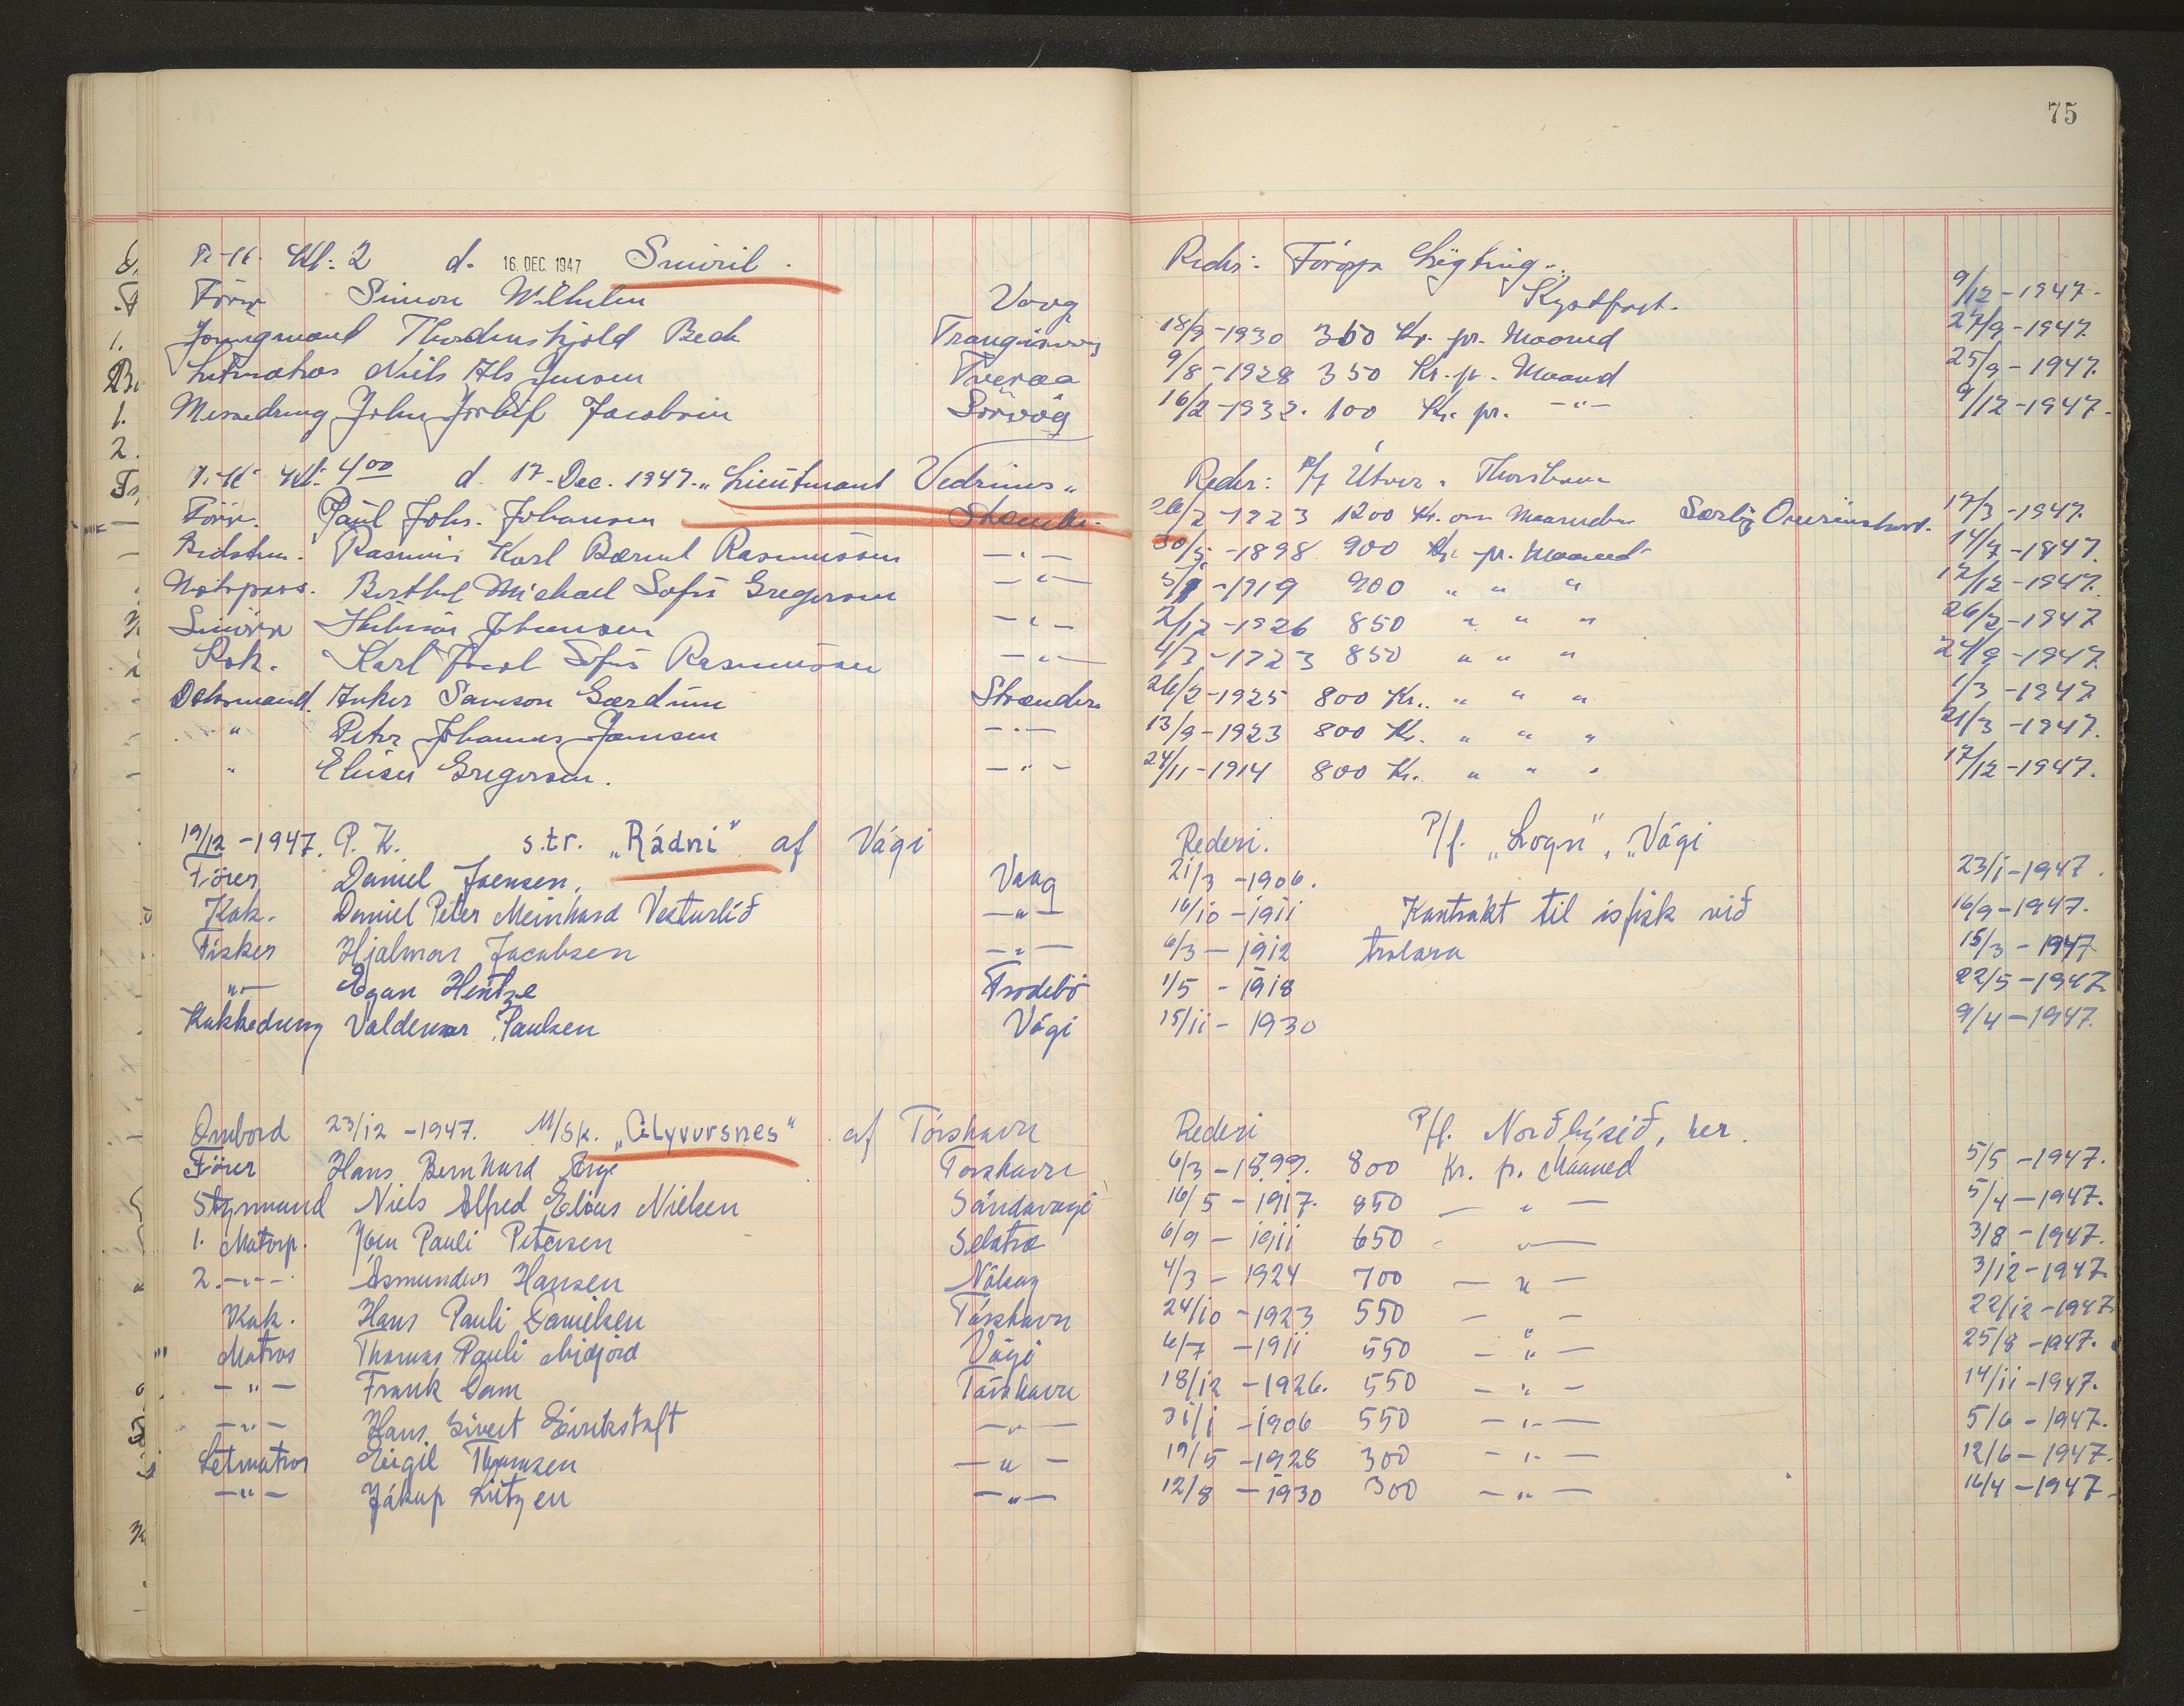 75
P.K. Kl: 2 d. 16. DEC. 1947 Smiril. Reder: Föroya Lögting.
Förer Simon Wilhelm Vaag Kystfart. 9/12-1947.
Jungmand Thordenskjold Beck Trangisvaag 18/9-1930 350 Kr. pr. Maaned 27/9-1947.
Letmatros Niels Als Jensen Tveraa 9/8-1928 350 Kr. pr. Maaned 25/9-1947.
Messedreng John Jorleif Jacobsen Sörvög 16/2-1932. 100 Kr. pr. -"- 9/12-1947.
P.K. Kl. 400 d. 17. Dec. 1947. "Lieutmant Vedrines" Reder: P/f Útver. Thorshavn
Förer. Paul Johs. Johansen Strender. 26/2-1923 1200 Kr. om Maaneden Særlig Overenskomst. 17/3-1947.
Bedstm. Rasmus Karl Bærent Rasmussen -"- 30/5-1898 900 Kr. pr. Maaned 14/7-1947.
Motorpass. Berthel Michael Sofus Gregersen -"- 900 " " " 17/12-1947.
Smörer Hilmar Johansen -"- 2/12-1926 850 " " " 26/3-1947
Kok. Karl Jacob Sofus Rasmussen -"- 4/3-1923 850 " " " 24/9-1947.
Dæksmand. Anker Samson Gærdum Strænder 26/2-1925 800 Kr. " " " 1/3-1947
" Peter Johannes Joensen -"- 13/9-1923 800 Kr. " " " 21/3-1947.
" Elieser Gregersen. -"- 24/11-1914 800 Kr. " " " 17/12-1947.
19/12-1947. P. K. s.tr. "Rádni" af Vági Rederi. P/f. "Logn", "Vági
Förer Daniel Joensen. Vaag 21/3-1906. 23/1-1947.
Kok. Daniel Peter Meinhard Vesturlíð -"- 16/10-1911 Kontrakt til isfisk við 16/9-1947.
Fisker Hjalmar Jacobsen -"- 6/3-1912 trolara 15/3-1947
-"- Egon Hentze Frodebö 1/5-1918 22/5-1947
Kokkedreng Valdemar Paulsen Vági 15/11-1930 9/4-1947.
Ombord 23/12-1947. M/Sk. "Glyvursnes" af Tórshavn Rederi P/f. Norðhýsið, her.
Förer Hans Bernhard Arge Torshavn 6/3-1899. 800 Kr. p. Maaned 5/5-1947.
Styrmand Niels Alfred Elias Nielsen Sándavági 16/5-1917. 850 -"- 5/4-1947.
1. Motorp. Jóen Pauli Petersen Selatra 6/9-1911 650 -"- 3/8-1947.
2. -"- Ásmundur Hansen Nólsoy 4/3-1924 700 -"- 3/12-1947.
Kok. Hans Pauli Danielsen Tórshavn 24/10-1923 550 -"- 22/12-1947
Matros Thomas Pauli Midjord Vági 6/7-1911 550 -"- 25/8-1947.
-"- Frank Dam Tórshavn 18/12-1926. 550 -"- 14/11-1947.
-"- Hans Sivert Eirikstoft -"- 31/1-1906 550 -"- 5/6-1947.
Letmatros Eigil Thomsen -"- 19/5-1928 300 -"- 12/6-1947.
-"- Jákup Lützen -"- 12/8-1930 300 -"- 16/4-1947.